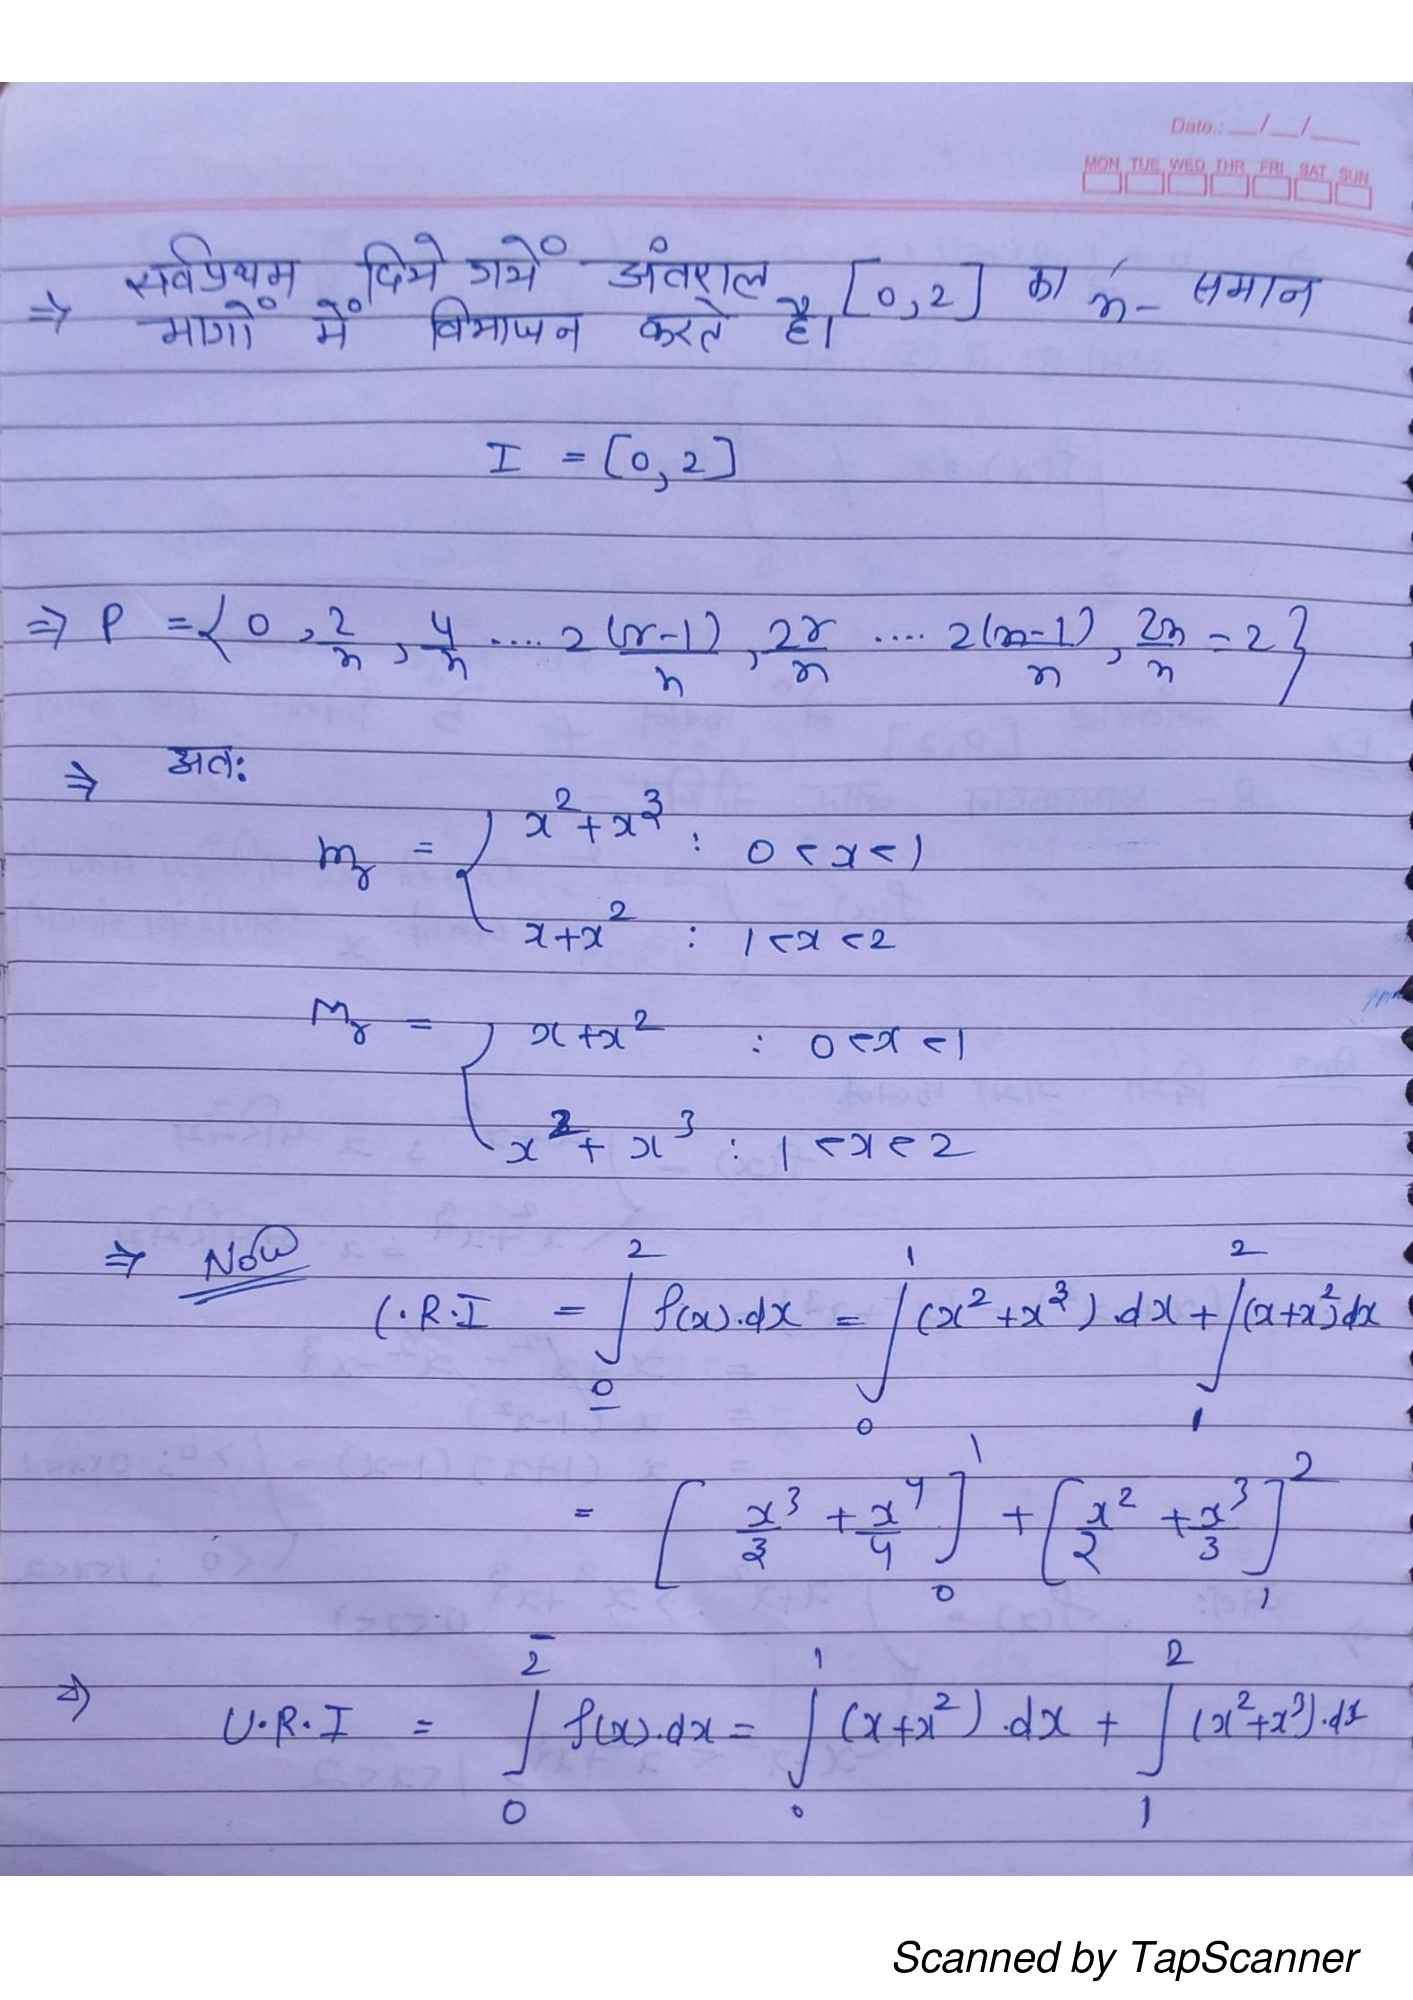 Date.: __/__/___
MON TUE WED THR FRI SAT SUN
⇒ सर्वप्रथम दिये गयें अंतराल [0,2] का n- समान
भागों में विभाजन करते है।
I = [0,2]
⇒ P = {0, 2/n, 4/n .... 2(r-1)/n, 2r/n .... 2(n-1)/n, 2n/n = 2}
⇒ अतः
m_r = { x²+x³ : 0<x<1
x+x² : 1<x<2
M_r = { x+x² : 0<x<1
x²+x³ : 1<x<2
⇒ Now
L.R.I = ∫_0^2 f(x).dx = ∫_0^1 (x²+x³).dx + ∫_1^2 (x+x²)dx
= [x³/3 + x⁴/4]_0^1 + [x²/2 + x³/3]_1^2
⇒ U.R.I = ∫_0^2̄ f(x).dx = ∫_0^1 (x+x²).dx + ∫_1^2 (x²+x³).dx
Scanned by TapScanner